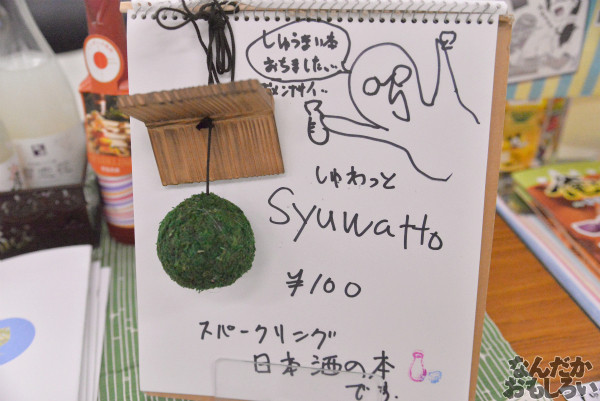 しゅうまい本
おちました、、
ゴメンナサイ、、
しゅわっと
Syuwatto
¥100
スパークリング
日本酒の本
です。
なんだか
おもしろい